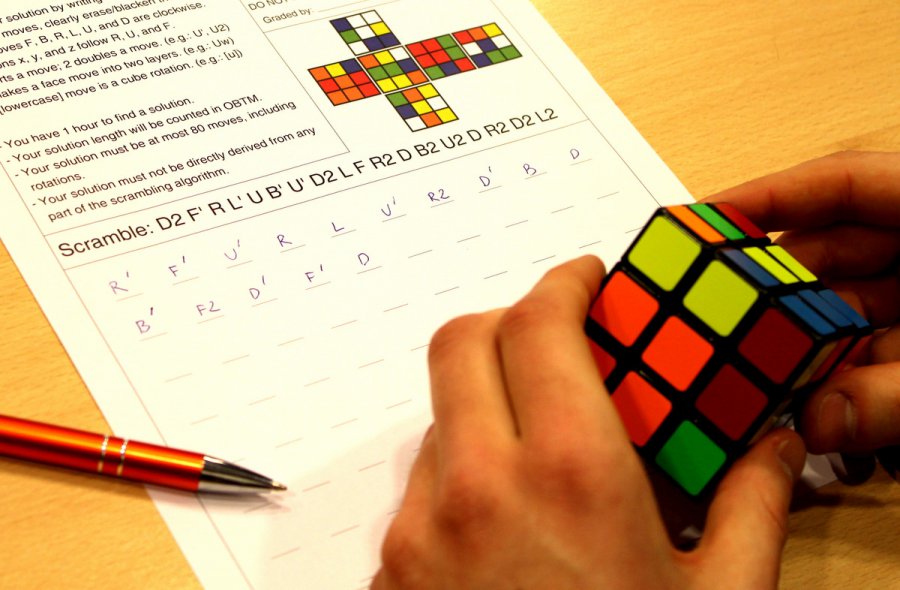 solution by writing
moves, clearly erase/blacken
F, B, R, L, U, and D are clockwise.
x, y, and z follow R, U, and F.
a move; 2 doubles a move. (e.g.: U', U2)
a face move into two layers. (e.g.: Uw)
[lowercase] move is a cube rotation. (e.g.: [u])
- You have 1 hour to find a solution.
- Your solution length will be counted in OBTM.
- Your solution must be at most 80 moves, including
rotations.
- Your solution must not be directly derived from any
part of the scrambling algorithm.
DO NO
Graded by:
Scramble: D2 F' R L' U B' U' D2 L F R2 D B2 U2 D R2 D2 L2
R' F' U' R L U' R2 D' B D
B' F2 D' F' D